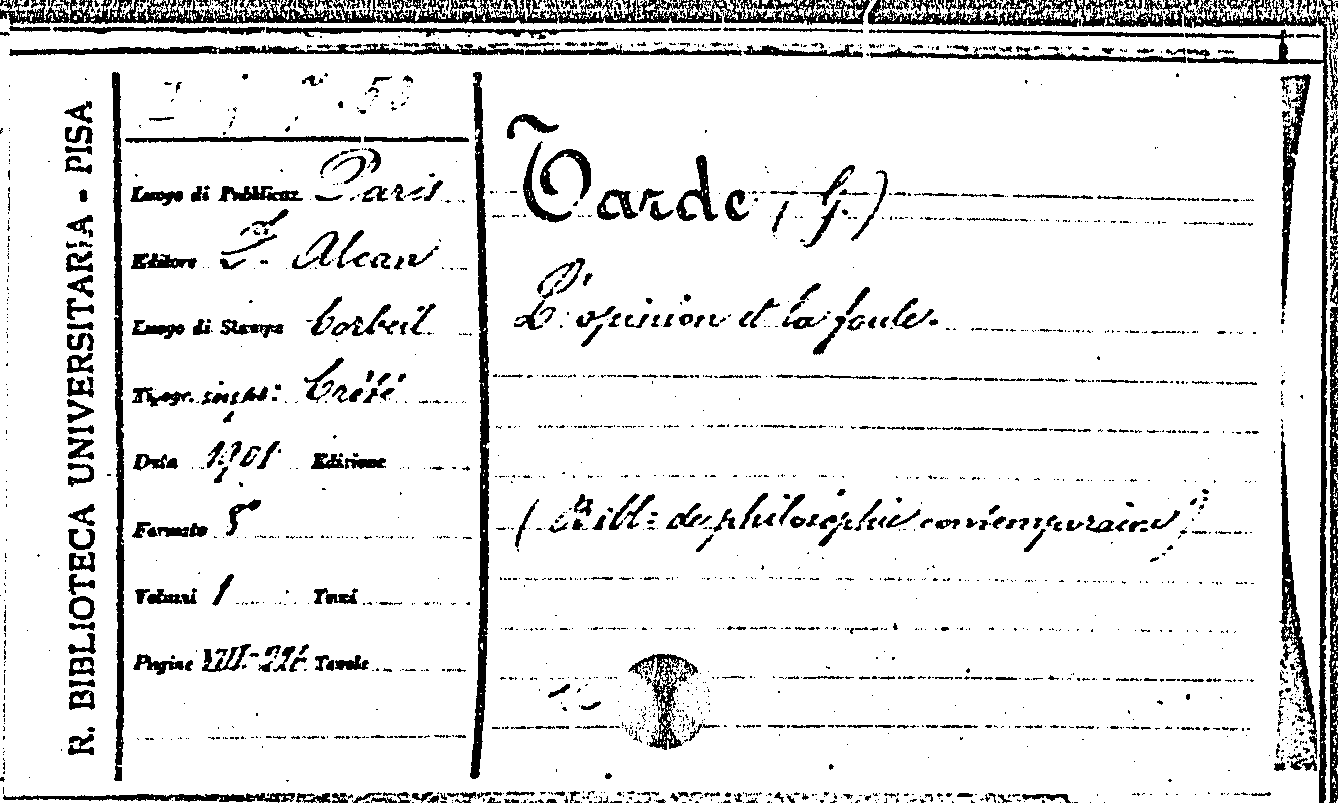 R. BIBLIOTECA UNIVERSITARIA - PISA
Luogo di Pubblicaz. Paris
Editore F. Alcan
Luogo di Stampa Corbeil
Tipogr. Crété
Data 1901 Edizione
Formato 8°
Volumi 1 Tomi
Pagine VIII-226 Tavole
Tarde (G.)
L'opinion et la foule.
(Bibl: de philosophie contemporaine)